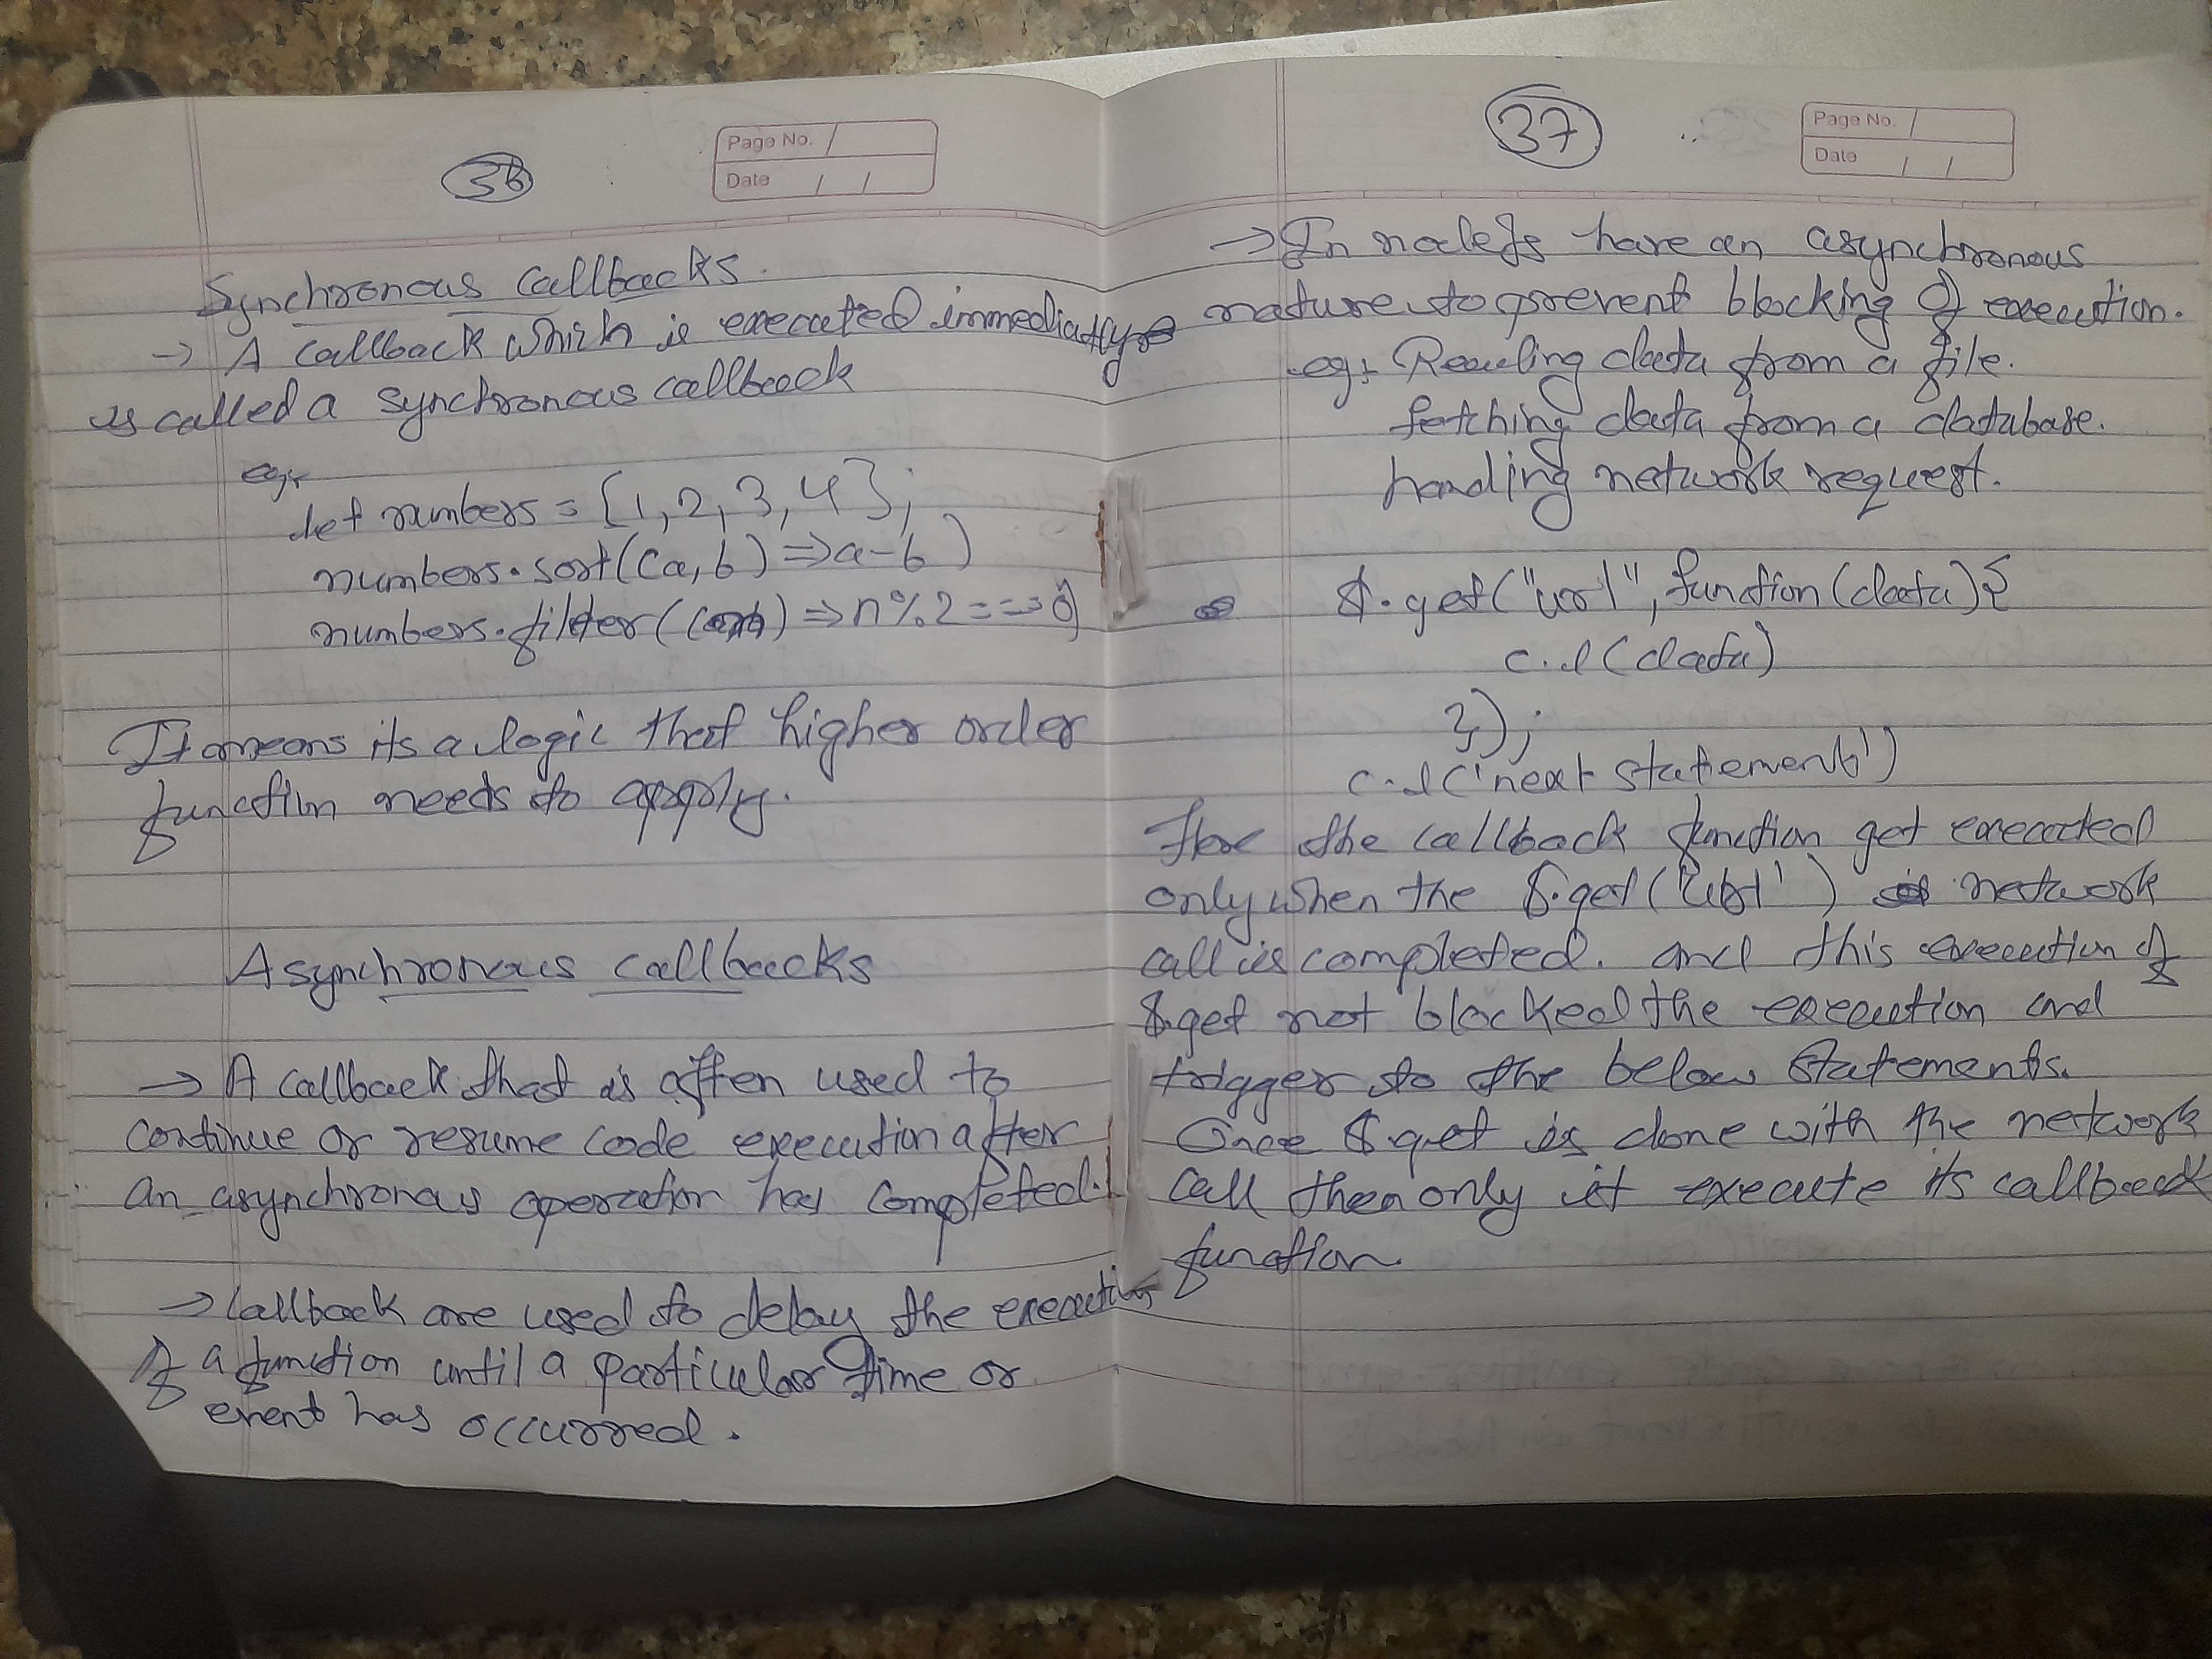 36
Page No. /
Date / /
Synchronous callbacks.
→ A callback which is executed immediatly
is called a synchronous callback
eg:
let numbers = [1, 2, 3, 4];
numbers.sort((a, b) => a-b )
numbers.filter(( ) => n%2 === 0)
It means its a logic that higher order
function needs to apply.
Asynchronous callbacks
→ A callback that is often used to
continue or resume code execution after
an asynchronous operator has completed.
→ callback are used to delay the execution
of a function until a particular time or
event has occurred.
37
Page No. /
Date / /
→ In nodeJs have an asynchronous
nature to prevent blocking of execution.
eg: Reading data from a file.
fetching data from a database.
handling network request.
$.get("url", function(data){
c.l(data)
});
c.l('next statement')
Here the callback function get executed
only when the $.get('url') network
call is completed. and this execution of
$.get not blocked the execution and
trigger to the below statements.
Once $.get is done with the network
call then only it execute its callback
function.